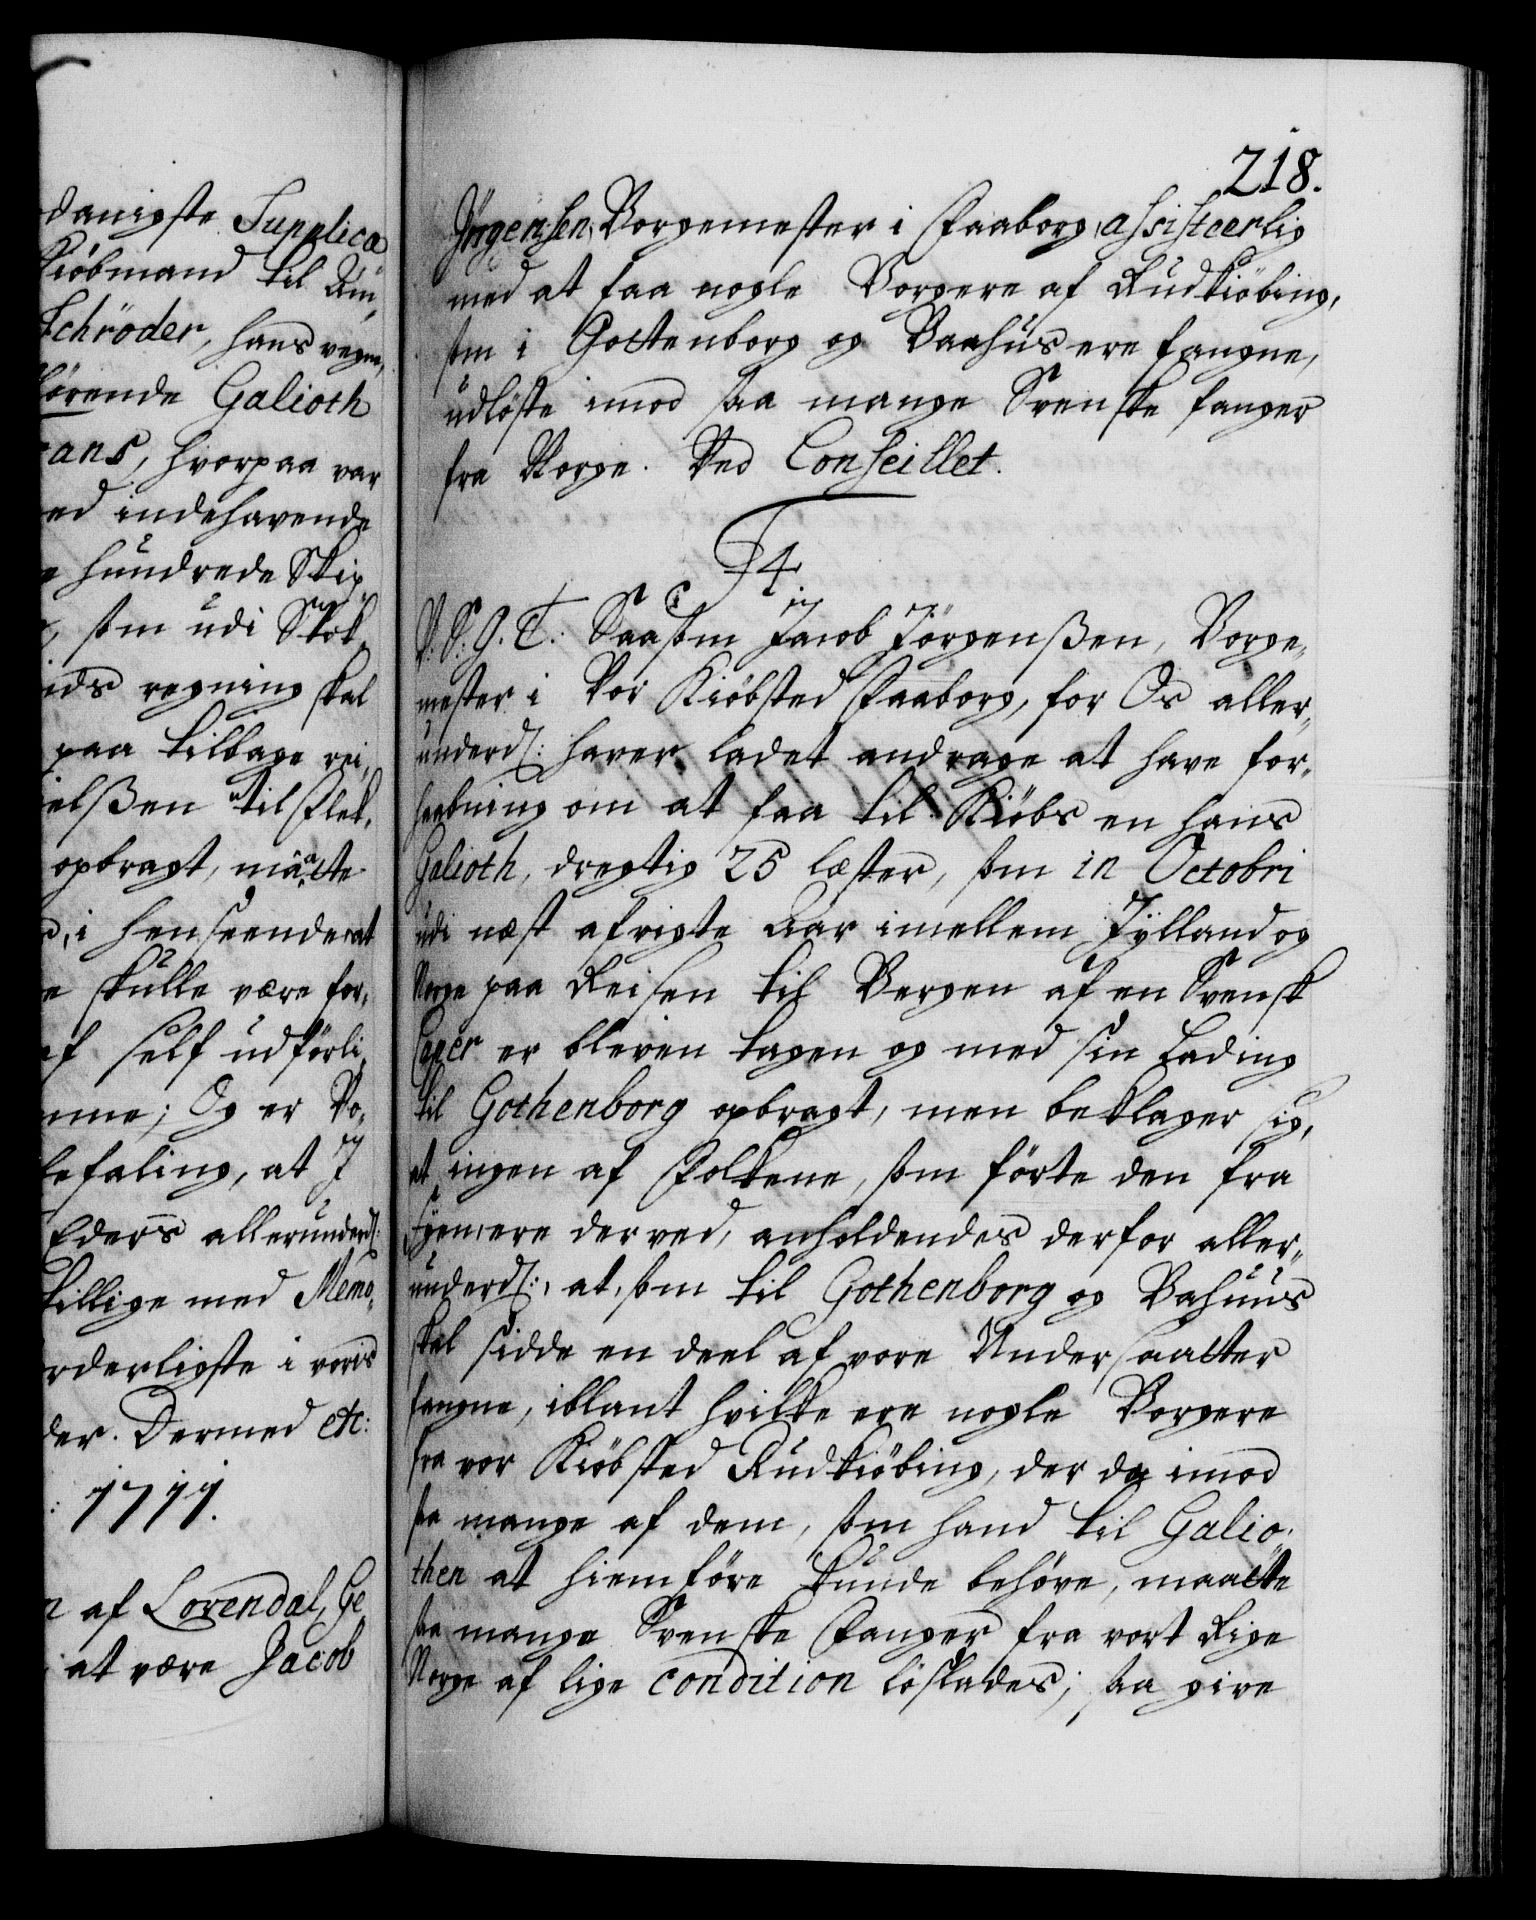 danigste Supplica
Kiöbmand til Am„
Schröder, hans vegne,
hörende Galioth
ans, hvorpaa var
ed indehavende
e hundrede Skip„
som udi Skok„
ids regning skal
paa tilbage rei„
elsßen til Flek„
opbragt, maatte
i henseende at
e skulle være for„
af self udförli„
nne; Og er Vo„
befaling, at I
Eders allerunderd:
tillige med Memo„
rderligste i vores
der. Dermed etc:
: 1711.
n af Lovendal, Ge„
at være Jacob
218.
Jörgensen, Borgemester i Faaborg, assisteerlig
med at faa nogle Borgere af Rudkiöbing,
som i Gottenborg og Baahus ere fangne,
udlöste imod saa mange Svenske fanger
fra Norge. Ved Conseillet.
F4.
V: S: G. T.: Saasom Jacob Jörgenßen, Borge„
mester i Vor Kiöbsted Faaborg, for Os aller„
underd: haver ladet andrage at have for„
haabning om at faa til Kiöbs en hans
Galioth, dregtig 25 læster, som in Octobri
udi næst afvigte Aar imellem Jylland og
Norge paa Reisen til Bergen af en Svensk
Caper er bleven tagen og med sin Lading
til Gothenborg opbragt, men beklager sig,
at ingen af Folkene, som förte den fra
Fyen, ere derved, anholdendes derfor aller„
underd:, at, som til Gothenborg og Bahuus
skal sidde en deel af vore Undersaatter
fangne, iblant hvilke ere nogle Borgere
fra vor Kiöbsted Rudkiöbing, der da imod
saa mange af dem, som hand til Galio„
then at hiemföre kunde behöve, maatte
saa mange Svenske Fanger fra vort Rige
Norge af lige condition löslades; saa give